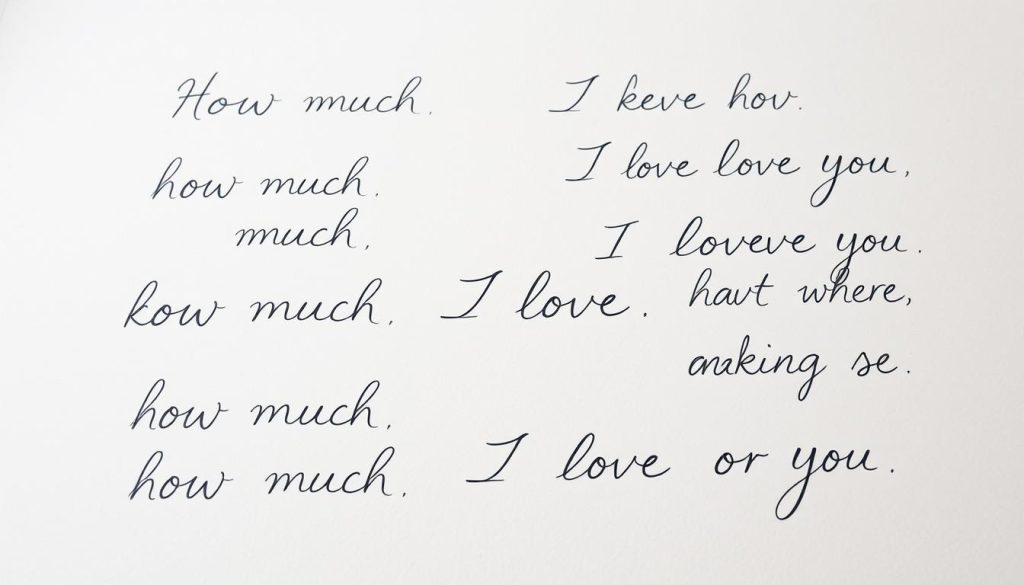 How much.
I keve hov.
how much.
I love love you,
much,
I loveve you.
kow much. I love.
havt where,
making se.
how much,
how much.
I love or you.